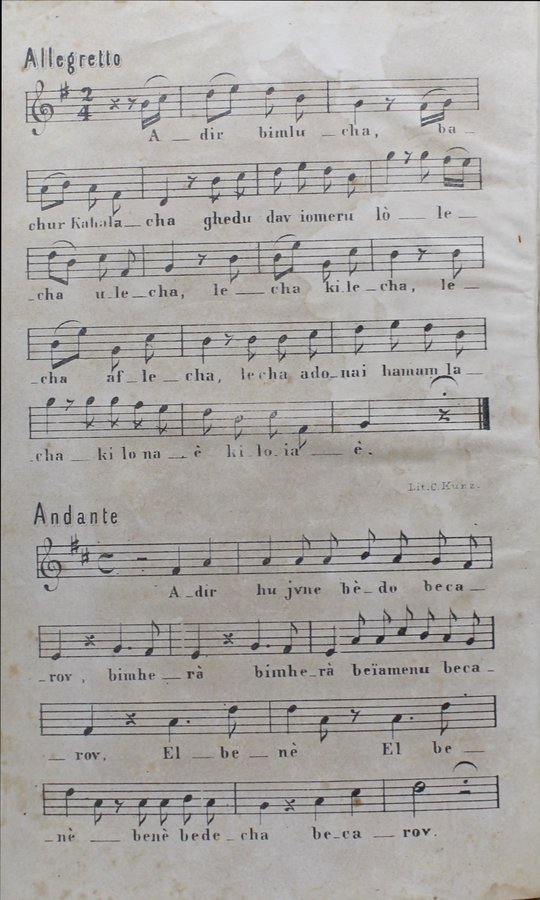 Allegretto
2
4
A _ dir bimlu _ cha, ba _
chur Kahala _ cha ghedu dav iomeru lò _ le _
_ cha u_le _ cha, le _ cha ki_le _ cha, le _
_ cha af _ le _ cha, lecha ado_nai hamam la _
_ cha _ ki lo na _ è ki_lo_ia _ è.
Lit. C. Kunz.
Andante
A _ dir hu jvne bè _ do beca _
_ rov, bimhe _ rà bimhe _ rà beïamenu beca _
_ rov, El _ be _ nè El be _
_ nè _ benè bede _ cha be _ ca _ rov.